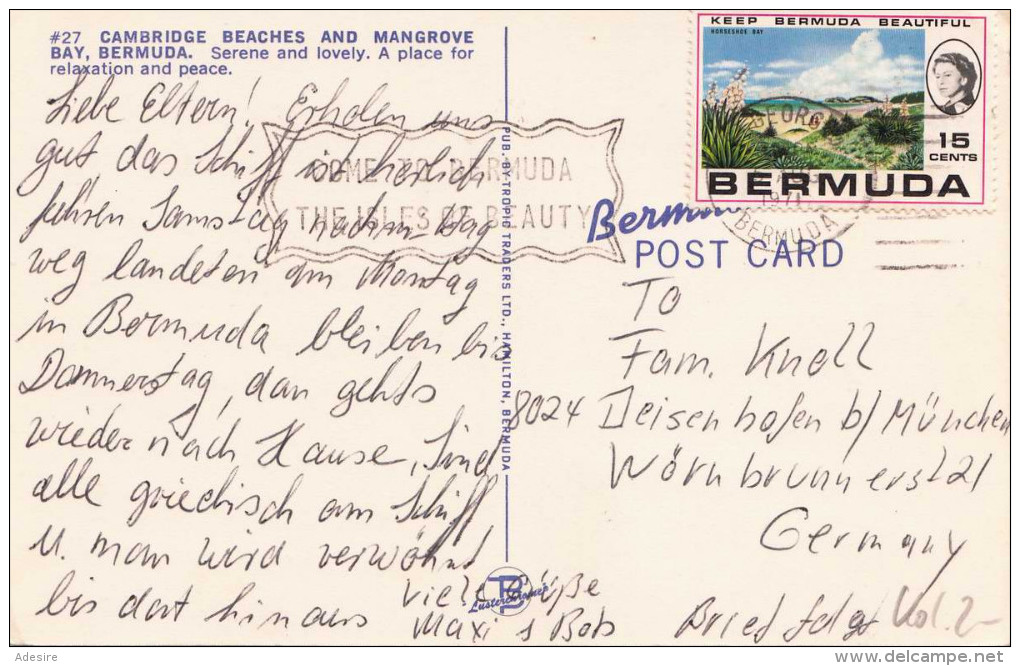 #27 CAMBRIDGE BEACHES AND MANGROVE
BAY, BERMUDA. Serene and lovely. A place for
relaxation and peace.
Liebe Eltern! Erholen uns
gut, das Schiff ist herrlich
fahren Samstag nachm.
weg landeten am Montag
in Bermuda bleiben bis
Donnerstag, dan gehts
wieder nach Hause, Sind
alle griechisch am Schiff
u. man wird verwöhnt
bis dort hinaus
Viele Grüße
Maxi s Bob
COME TO BERMUDA
THE ISLES OF BEAUTY
PUB. BY TROPIC TRADERS LTD., HAMILTON, BERMUDA
Lusterchrome
KEEP BERMUDA BEAUTIFUL
HORSESHOE BAY
15
CENTS
BERMUDA
GEORGE
1971
BERMUDA
Bermuda
POST CARD
To
Fam. Knoll
8024 Deisenhofen b/München
Wörnbrunnerst 21
Germany
Brief folgt
Kol. 2-
© Adesire
http://www.delcampe.net